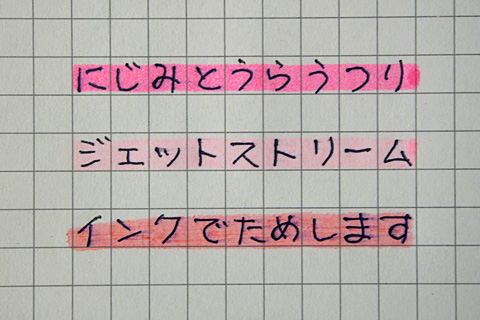 にじみとうらうつり
ジェットストリーム
インクでためします